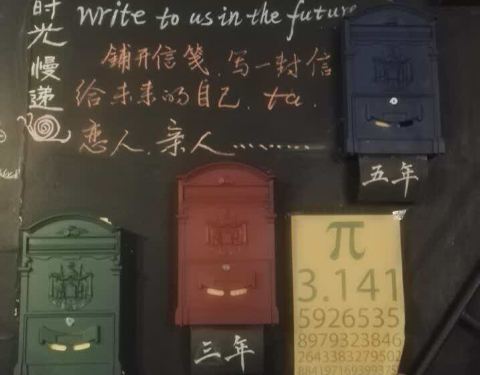 时光慢递
write to us in the future
铺开信笺,写一封信
给未来的自己、ta、
恋人、亲人…………
五年
三年
π
3.141
5926535
8979323846
2643383279502